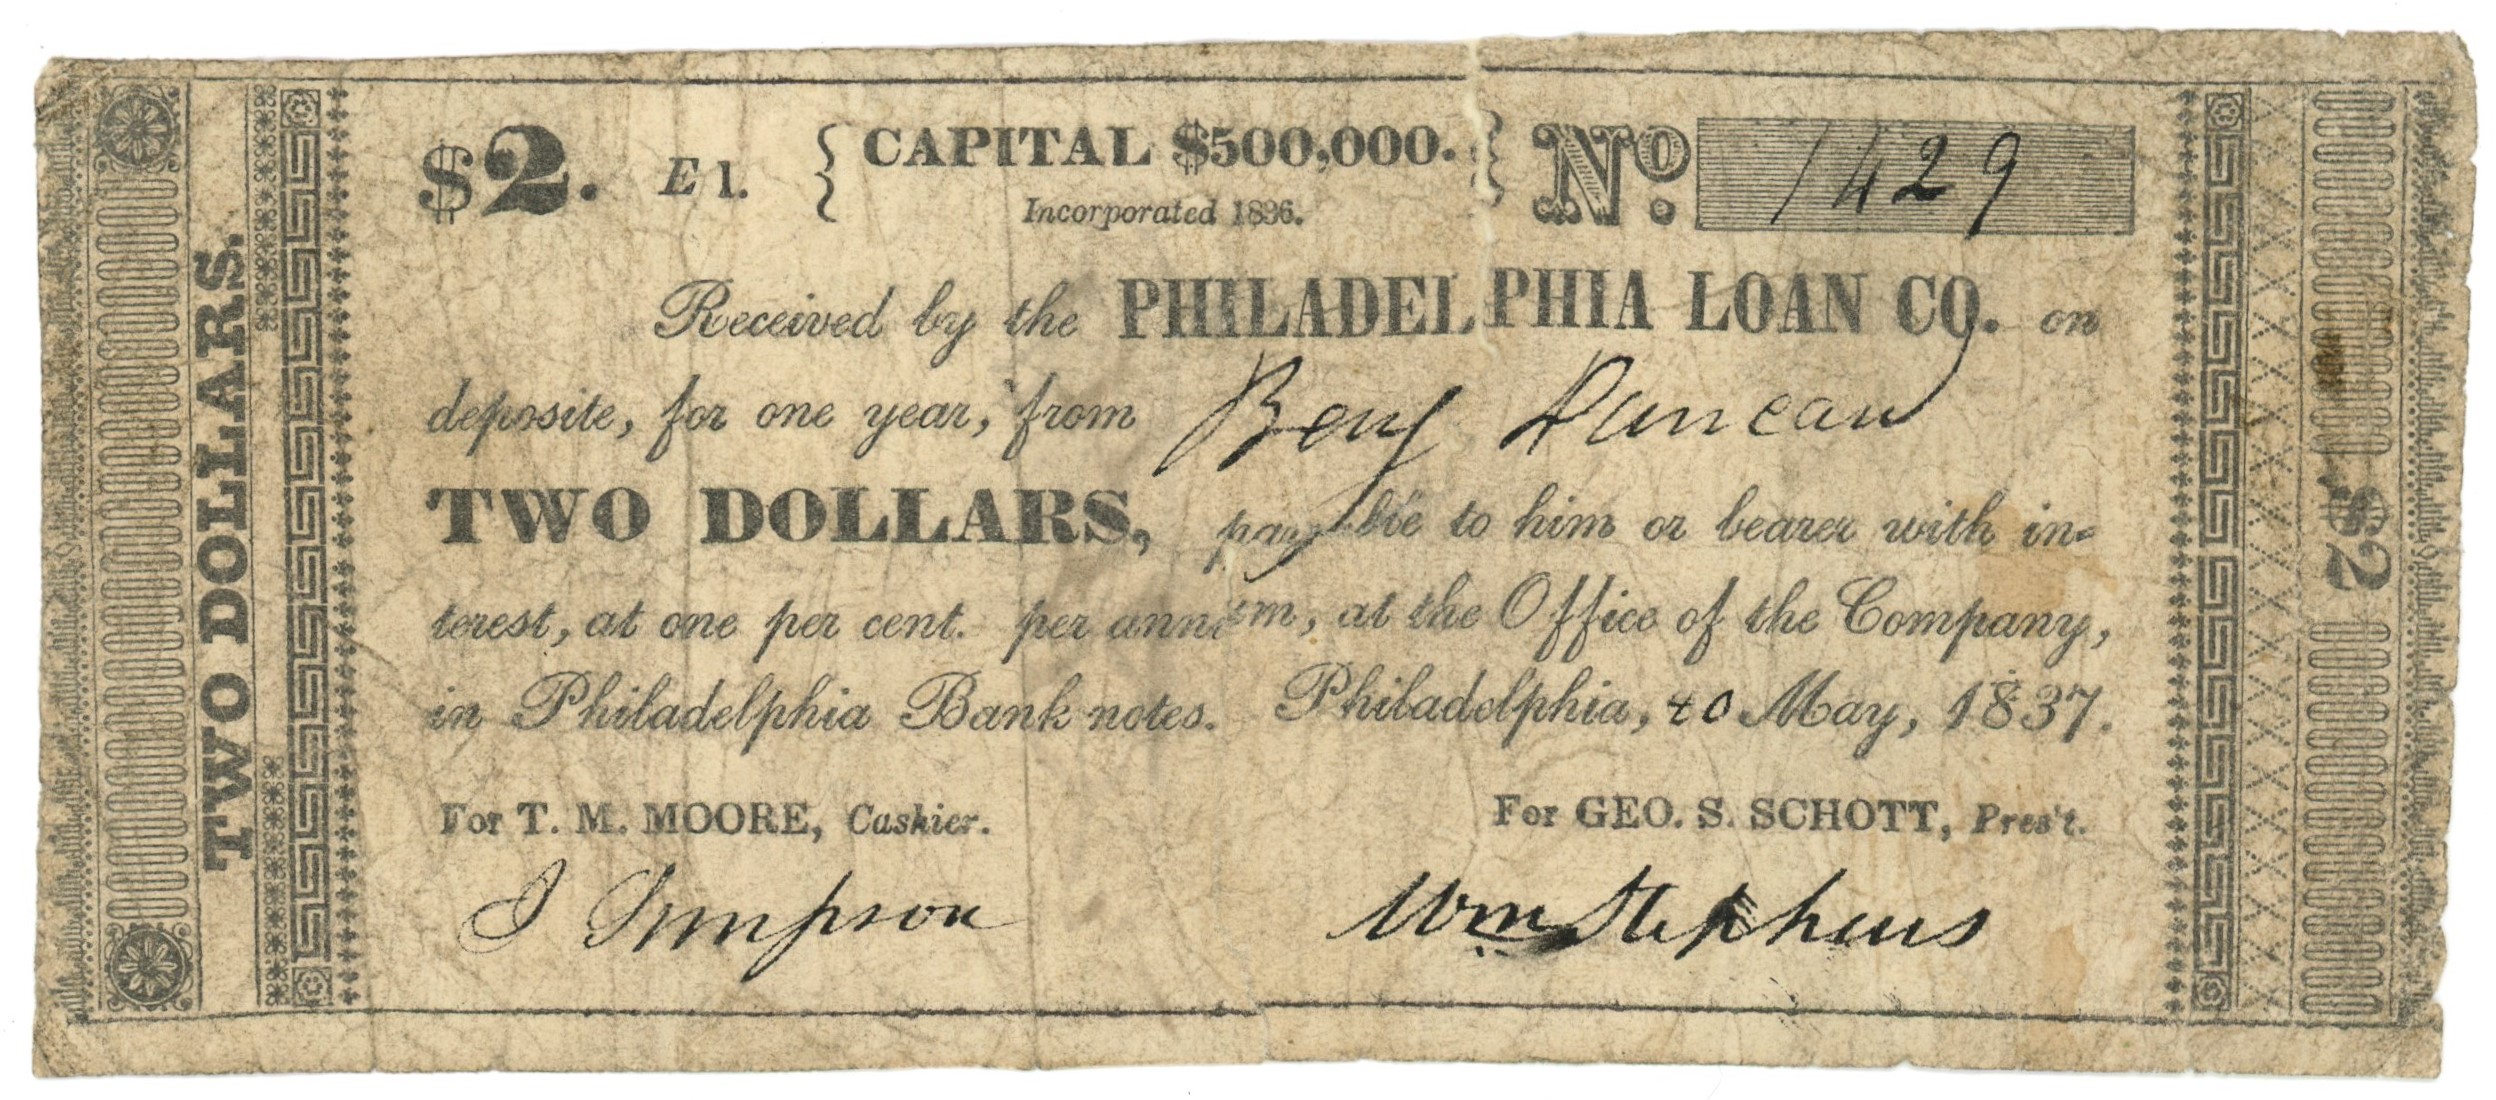 $2. E 1. { CAPITAL $500,000. } No. 1429
Incorporated 1836.
Received by the PHILADELPHIA LOAN CO. on
deposite, for one year, from Benj Duncan
TWO DOLLARS, payable to him or bearer with in=
terest, at one per cent. per annum, at the Office of the Company,
in Philadelphia Bank notes. Philadelphia, May, 1837.
For T. M. MOORE, Cashier. For GEO. S. SCHOTT, Pres't.
J Simpson Wm Stephens
TWO DOLLARS.
$2